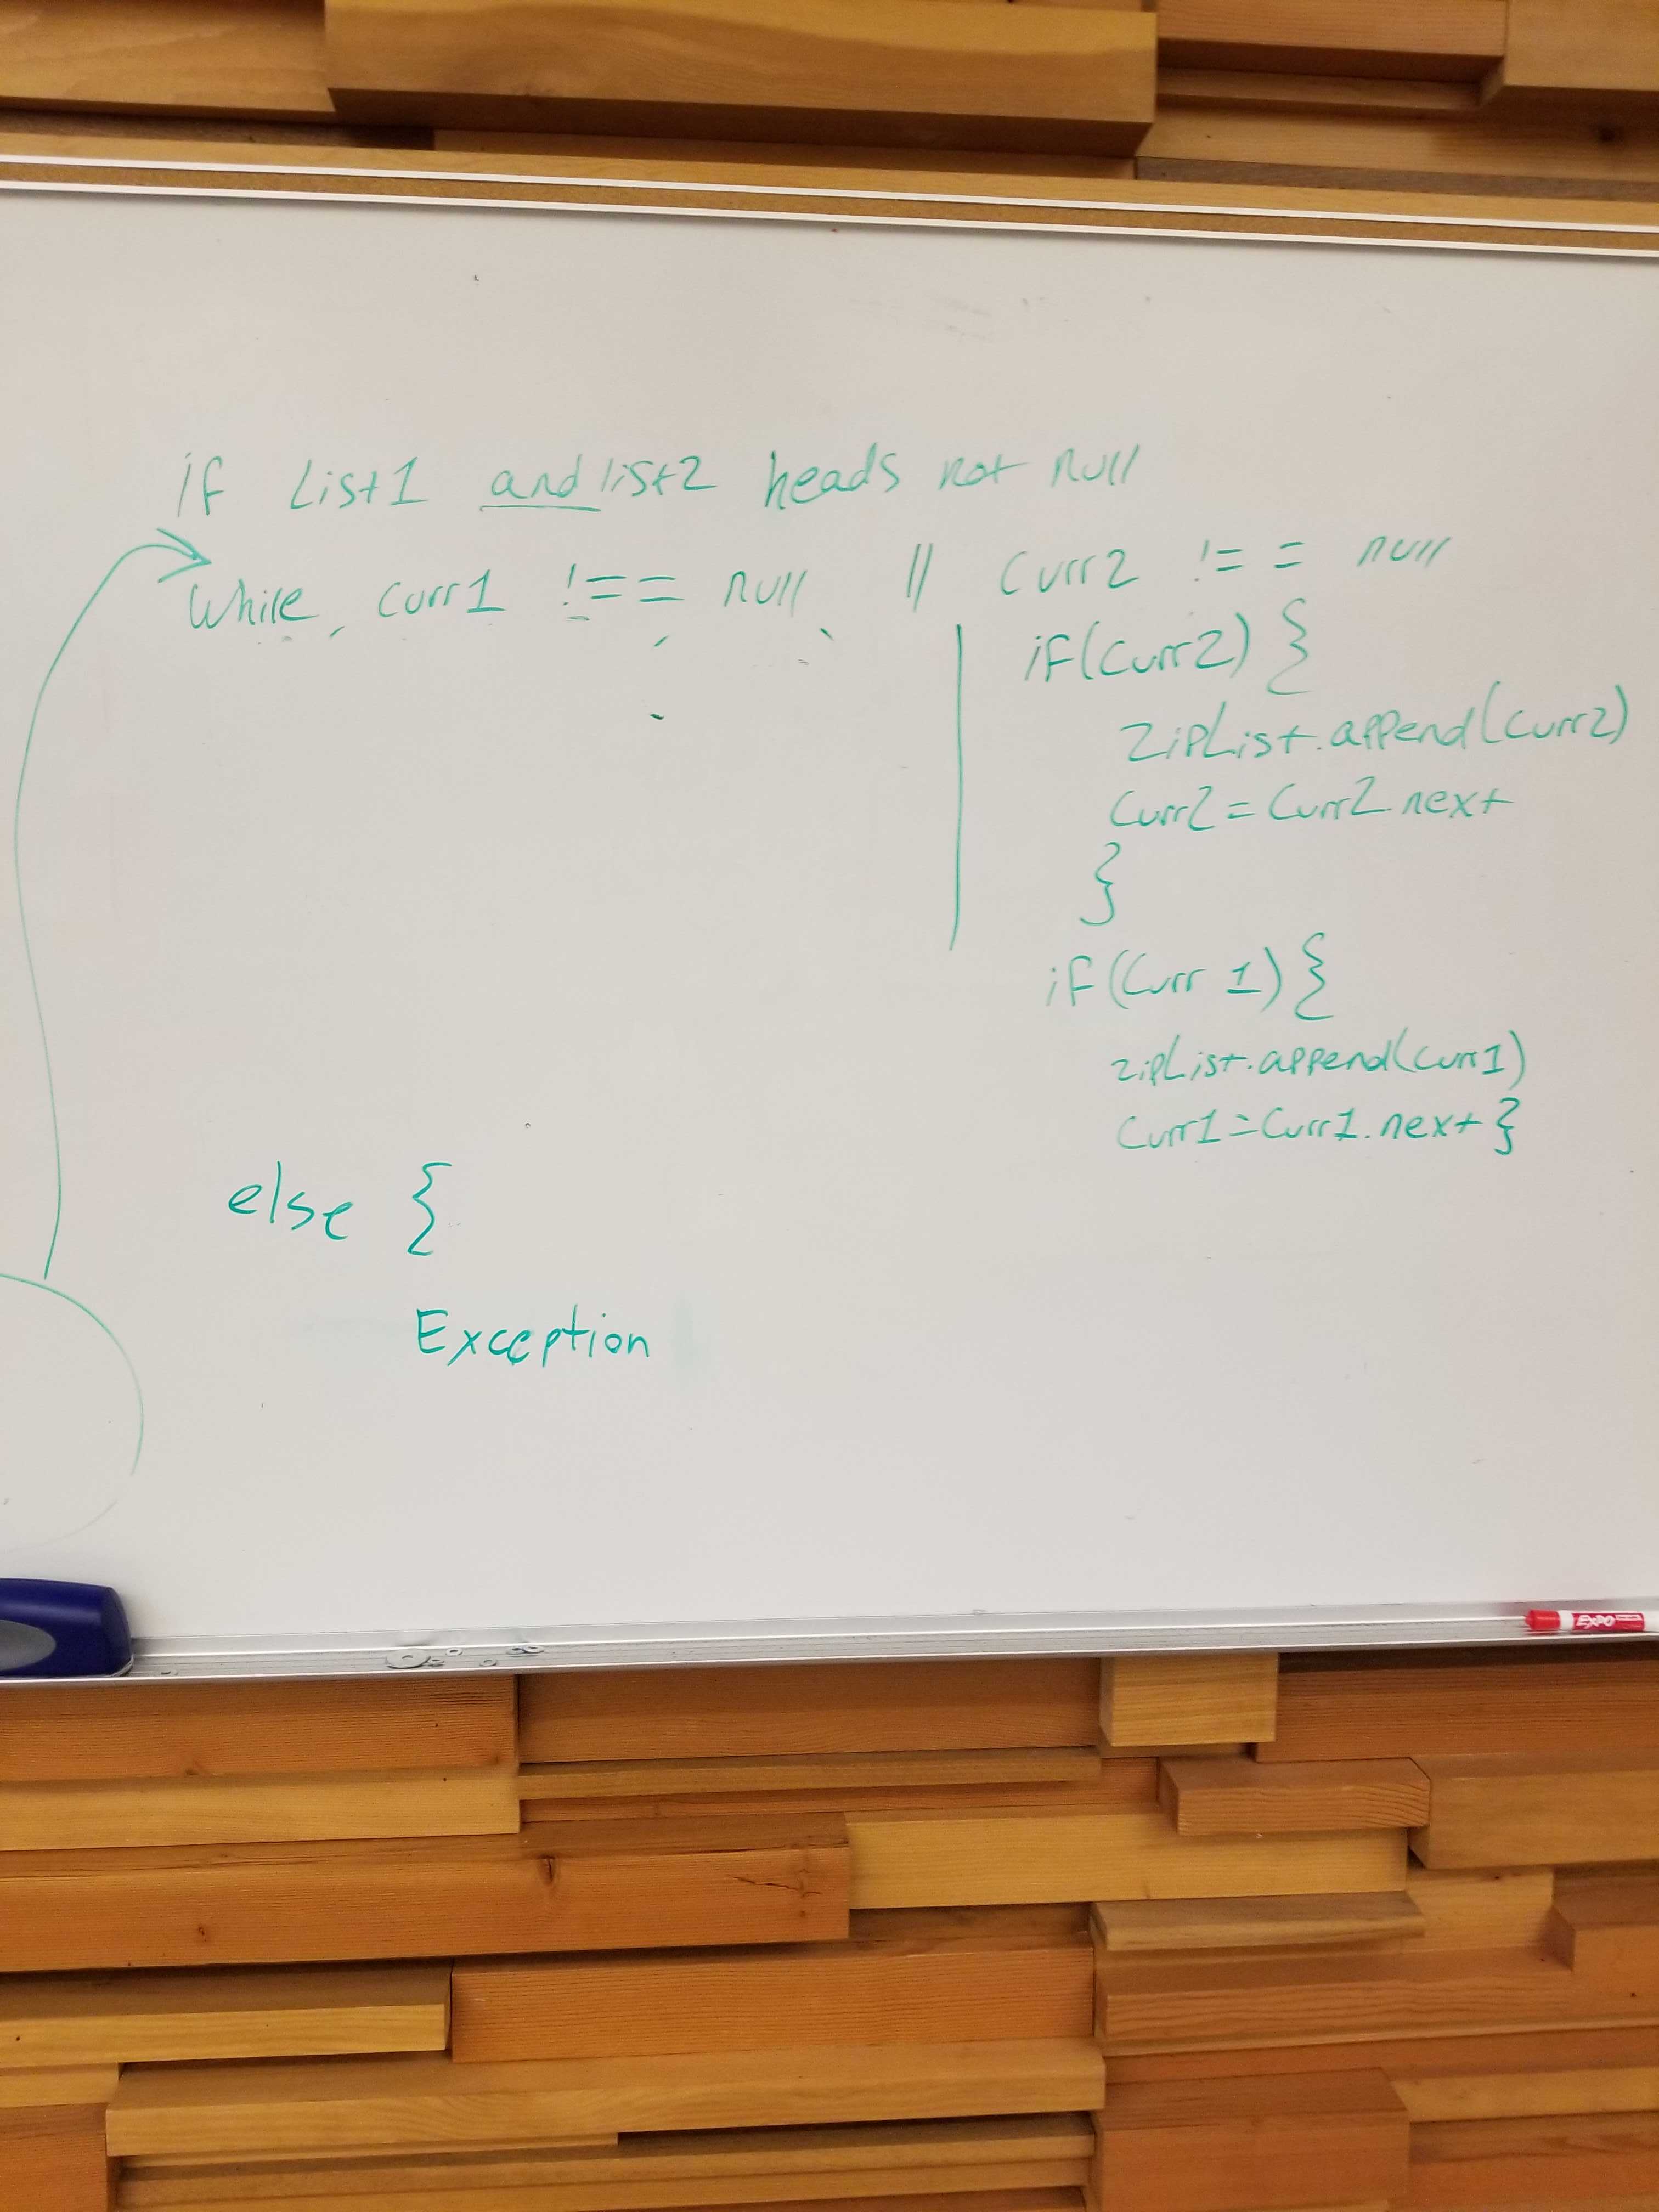 if List1 and list2 heads not null
while curr1 !== null || curr2 !== null
if(curr2) {
zipList.append(curr2)
curr2 = curr2.next
}
if(curr 1) {
zipList.append(curr1)
curr1 = curr1.next }
else {
Exception
EXPO